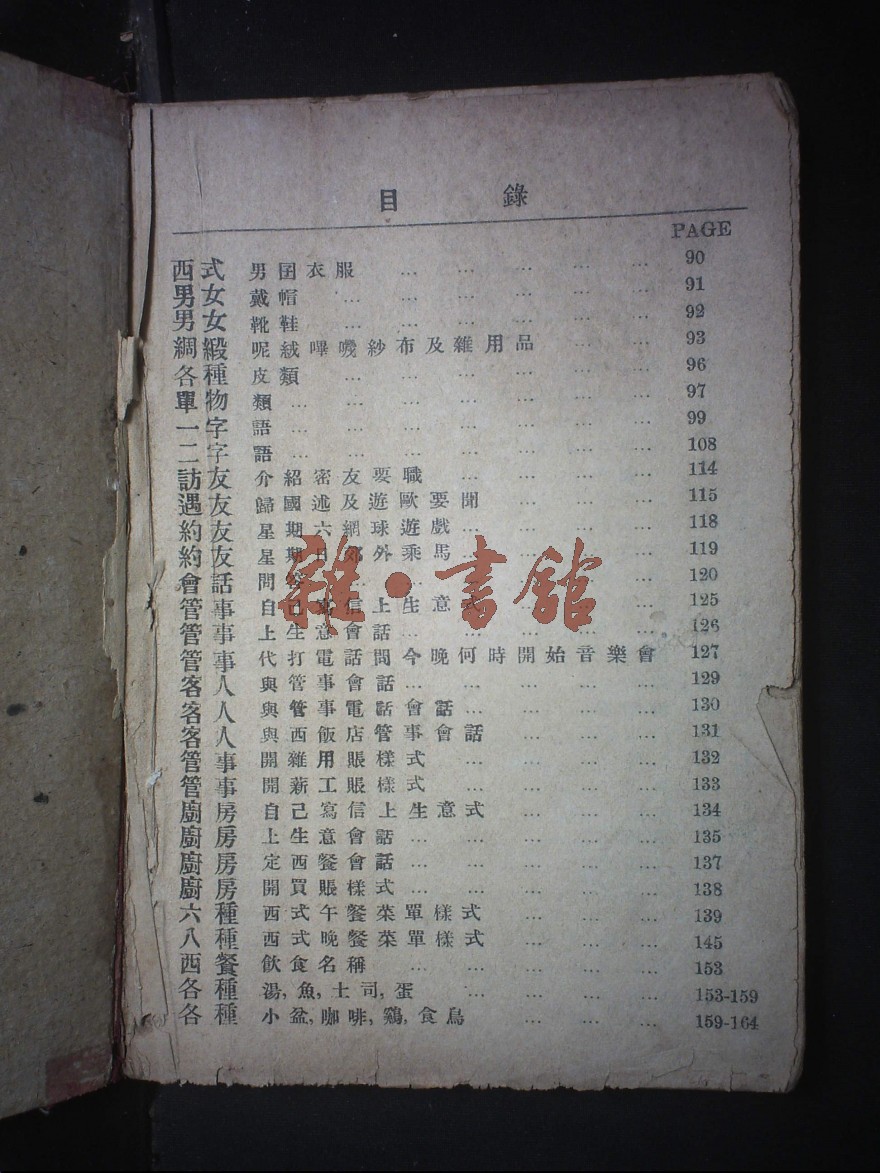 目 錄
PAGE
西式 男囝衣服 ... ... ... ... ... 90
男女 戴帽 ... ... ... ... ... ... 91
男女 靴鞋 ... ... ... ... ... ... 92
綢緞 呢絨嗶嘰紗布及雜用品 ... ... 93
各種 皮類 ... ... ... ... ... ... 96
單物 類 ... ... ... ... ... ... ... 97
一字 語 ... ... ... ... ... ... ... 99
二字 語 ... ... ... ... ... ... ... 108
訪友 介紹密友要職 ... ... ... ... 114
遇友 歸國述及遊歐要聞 ... ... ... 115
約友 星期六網球遊戲 ... ... ... ... 118
約友 星期日郊外乘馬 ... ... ... ... 119
會話 問答 ... ... ... ... ... ... 120
管事 自己寫信上生意式 ... ... ... 125
管事 上生意會話 ... ... ... ... ... 126
管事 代打電話問今晚何時開始音樂會 127
客人 與管事會話 ... ... ... ... ... 129
客人 與管事電話會話 ... ... ... ... 130
客人 與西飯店管事會話 ... ... ... 131
管事 開雜用賬樣式 ... ... ... ... 132
管事 開薪工賬樣式 ... ... ... ... 133
廚房 自己寫信上生意式 ... ... ... 134
廚房 上生意會話 ... ... ... ... ... 135
廚房 定西餐會話 ... ... ... ... ... 137
廚房 開買賬樣式 ... ... ... ... ... 138
六種 西式午餐菜單樣式 ... ... ... 139
八種 西式晚餐菜單樣式 ... ... ... 145
西餐 飲食名稱 ... ... ... ... ... 153
各種 湯,魚,土司,蛋 ... ... ... ... 153-159
各種 小盆,咖啡,鷄,食鳥 ... ... ... 159-164
雜·書館